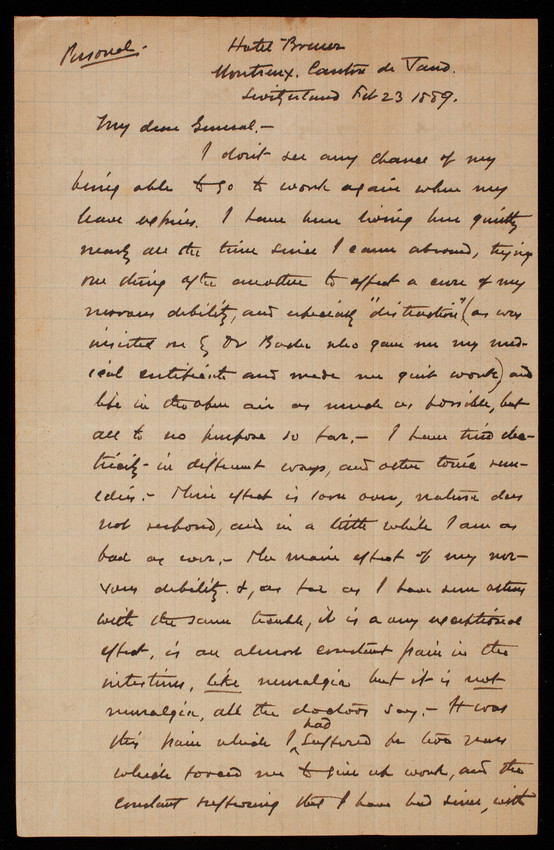 Personal.-
Hotel Breuer
Montreux. Canton de Vaud.
Switzerland Feb 23 1889.
My dear General.-
I don't see any chance of my
being able to go to work again when my
leave expires. I have been living here quietly
nearly all the time since I came abroad, trying
one thing after another to effect a cure of my
nervous debility, and especially "distraction" (as was
insisted on by Dr who gave me my med-
ical certificate and made me quit work) and
life in the open air as much as possible, but
all to no purpose so far.- I have tried elec-
tricity - in different ways, and other tonic rem-
edies.- Their effect is soon over, nature does
not respond, and in a little while I am as
bad as ever.- The main effect of my ner-
vous debility &, as far as I have seen others
with the same trouble, it is a very exceptional
effect, is an almost constant pain in the
intestines, like neuralgia but it is not
neuralgia, all the doctors say.- It was
this pain which I had suffered for two years
which forced me to give up work, and the
constant suffering that I have had since, with